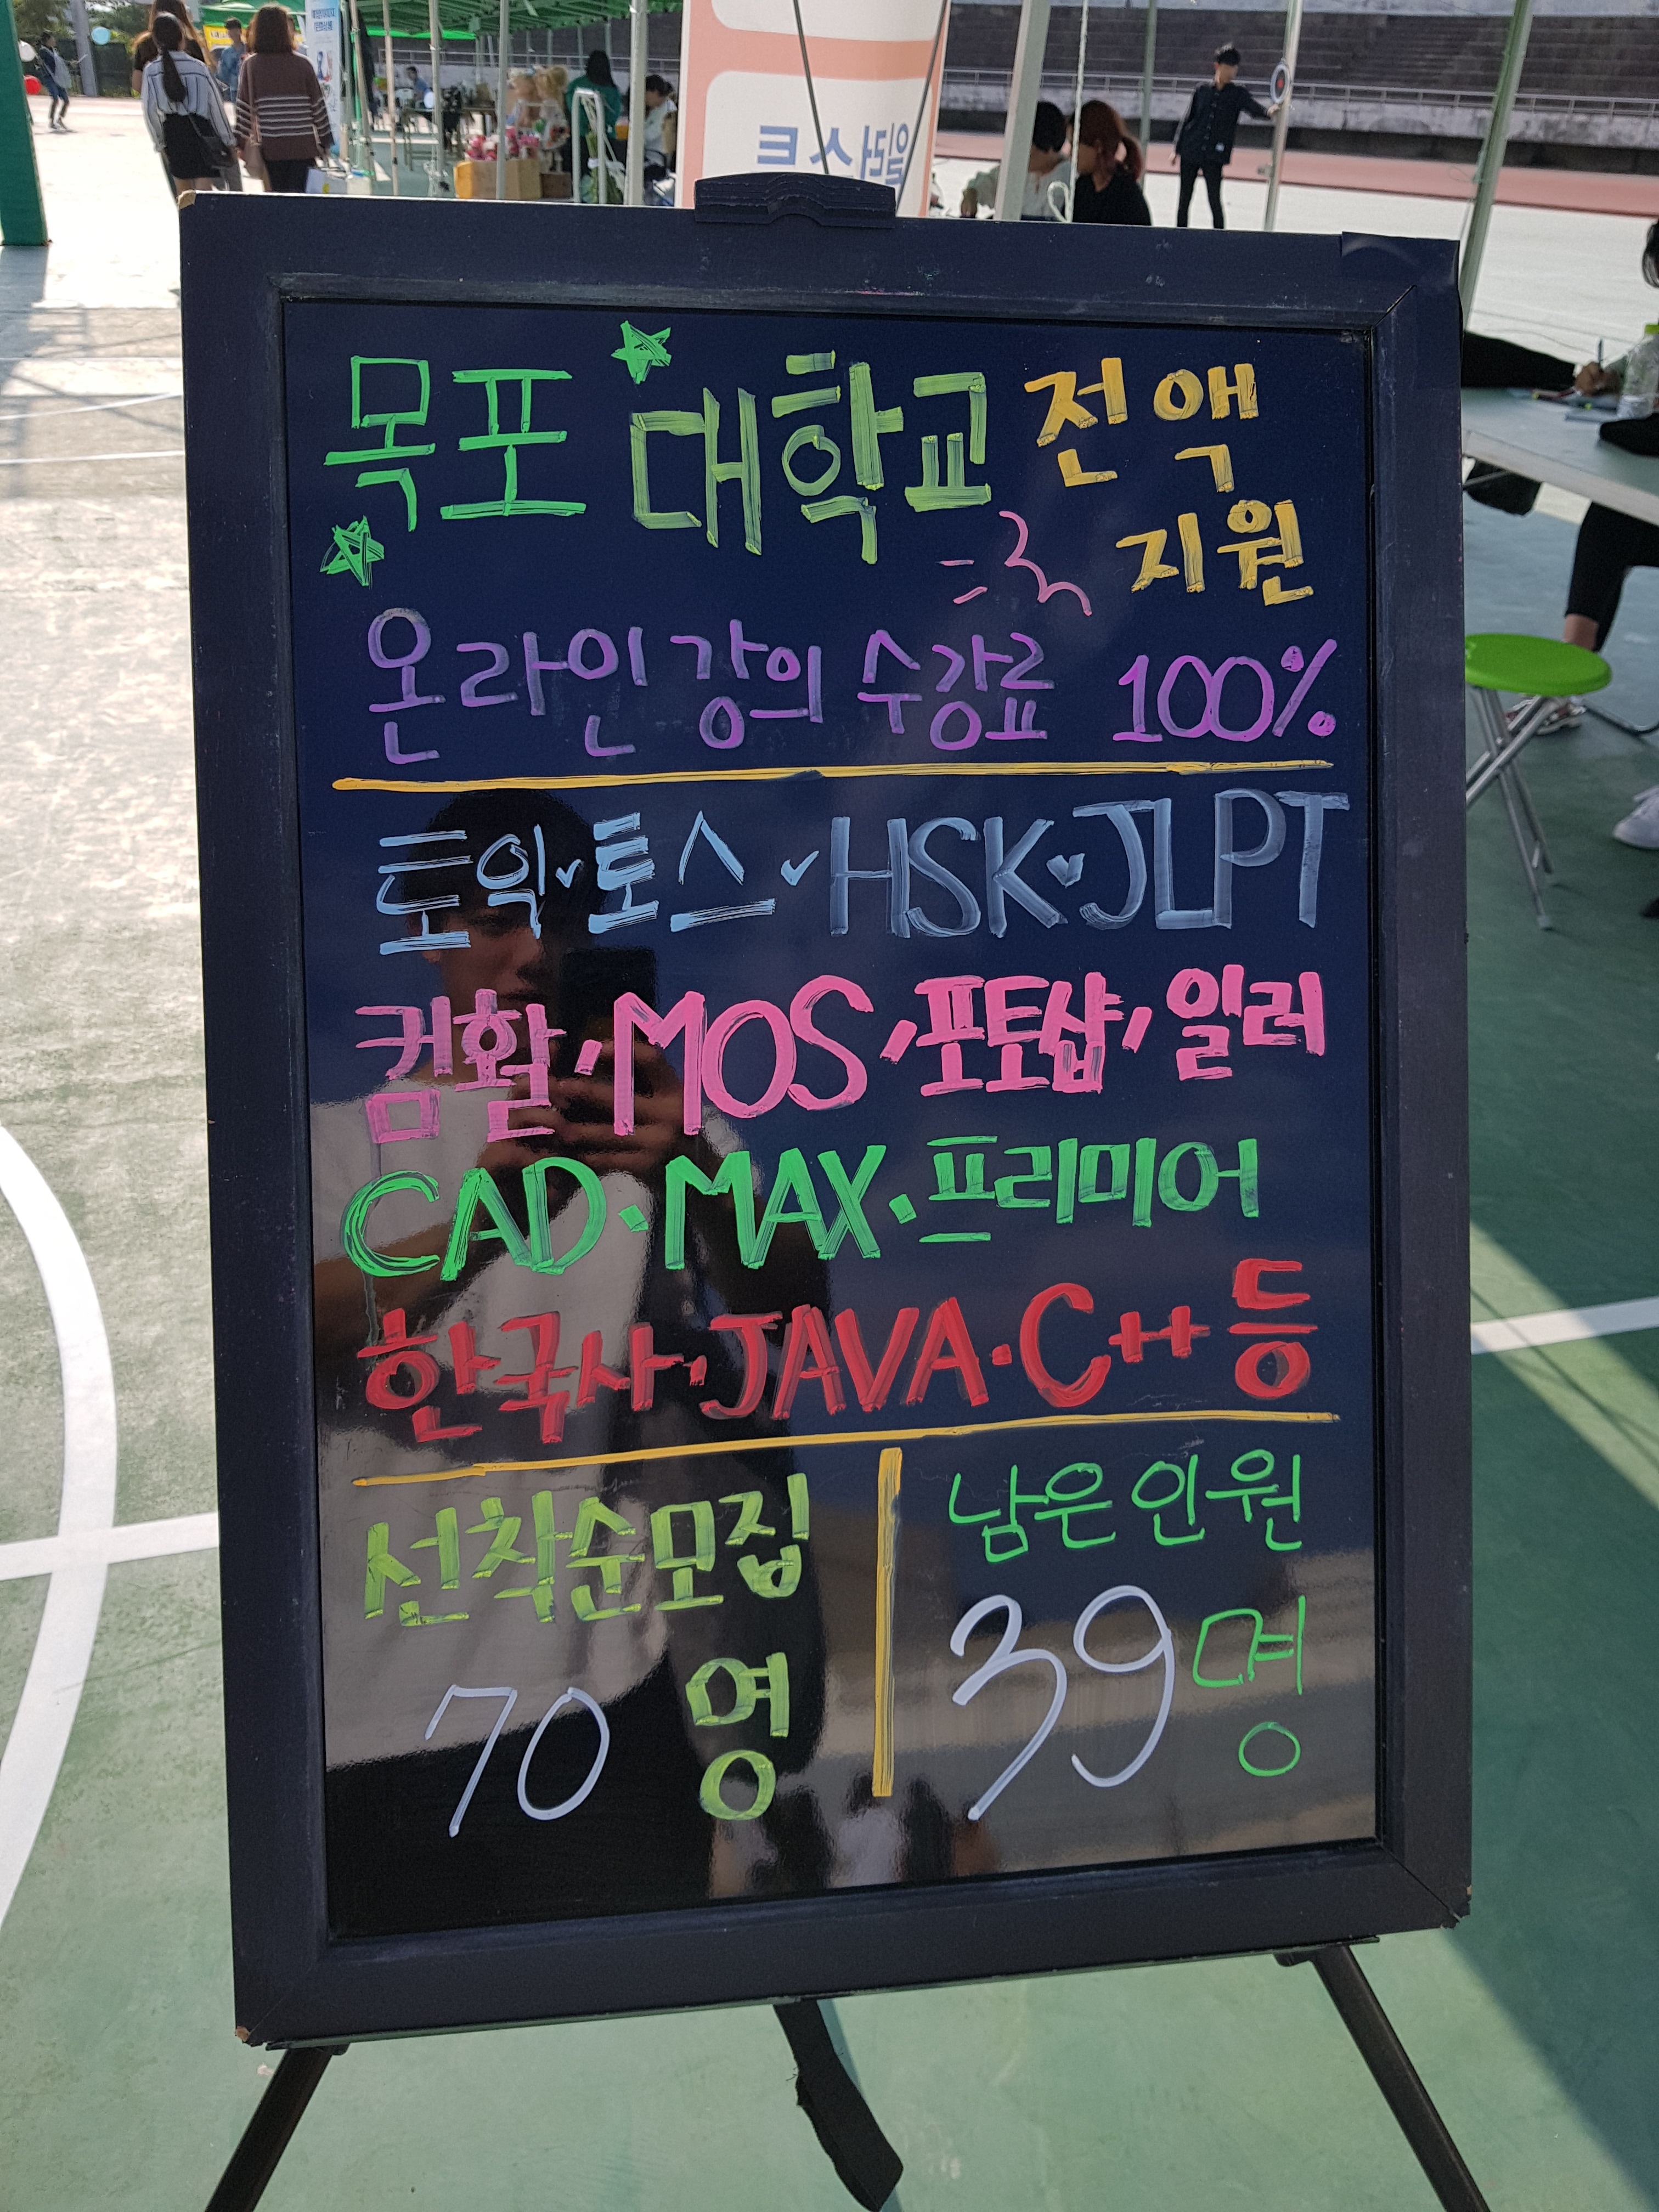 일러스트
목포 대학교 전액
지원
온라인 강의 수강료 100%
토익 · 토스 · HSK · JLPT
컴활, MOS, 포토샵, 일러
CAD · MAX · 프리미어
한국사 · JAVA · C++ 등
선착순모집
70 명
남은인원
39 명